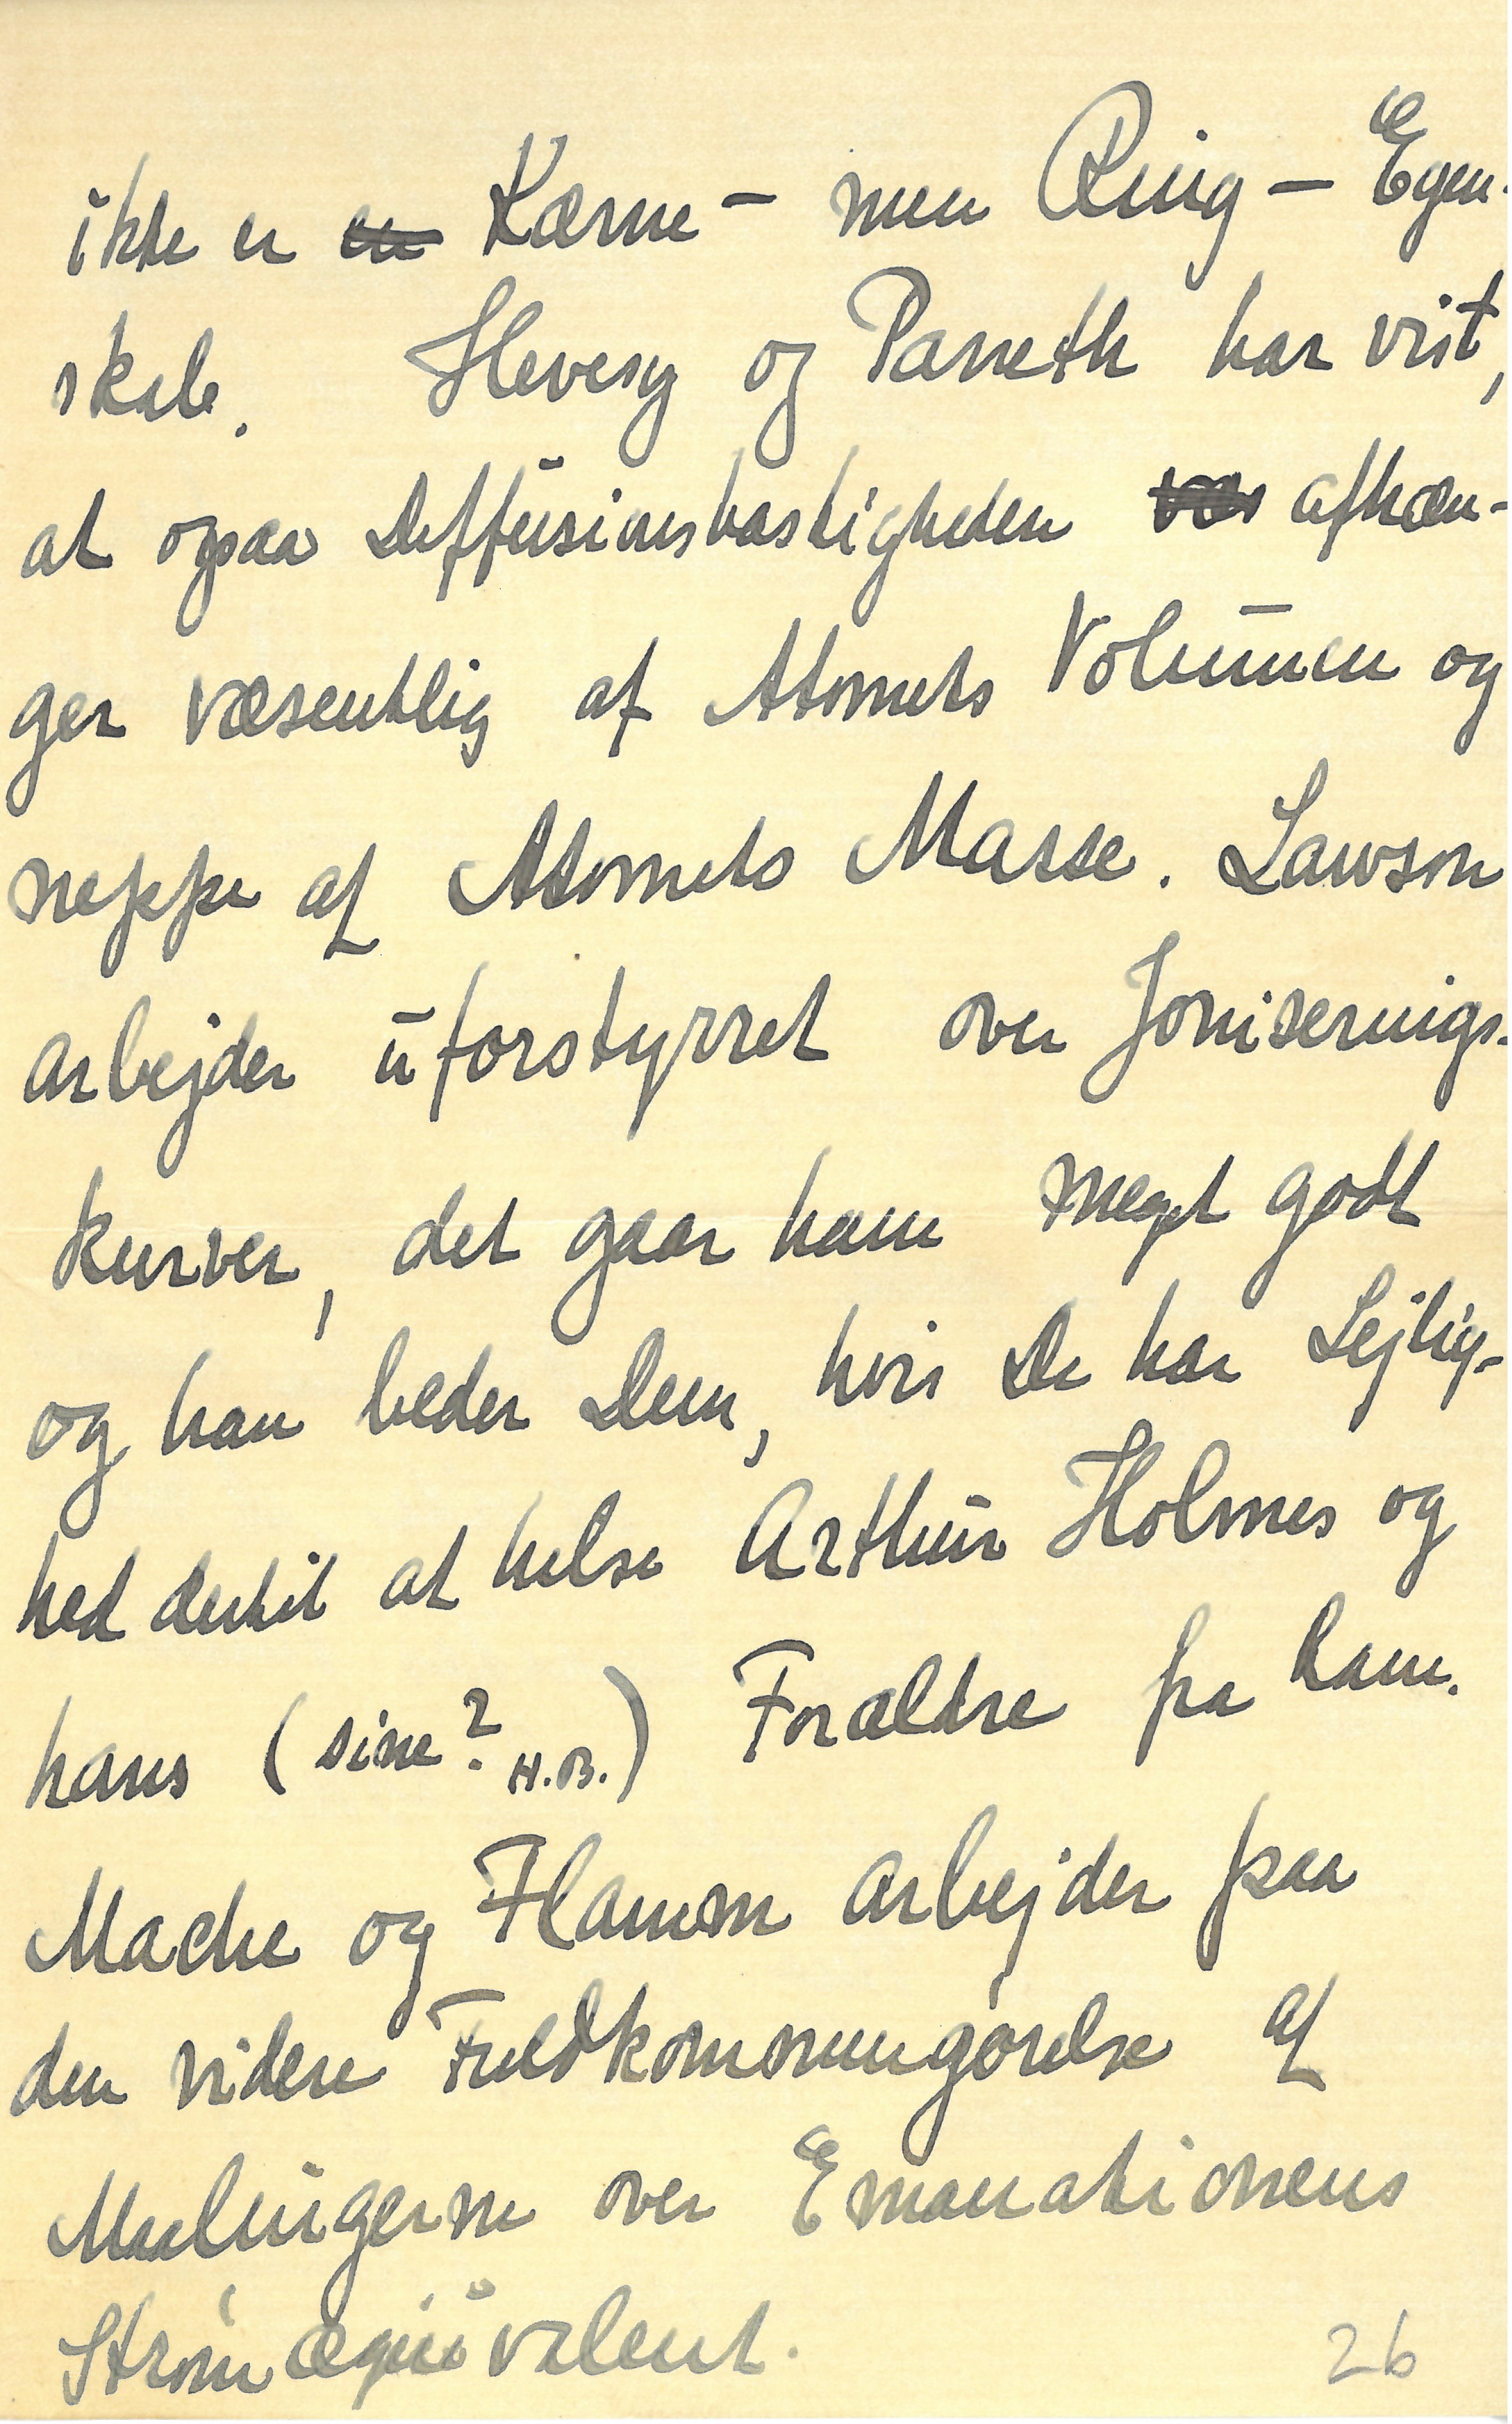 ikke er en Kærne - men Ring - Egen-
skab. Hevesy og Paneth har vist,
at ogsaa Diffusionshastigheden afhæn-
ger væsentlig af Atomets Volumen og
neppe af Atomets Masse. Lawson
arbejder uforstyrret over Joniserings-
kurver, det gaar ham meget godt
og han beder Dem, hvis De har Lejlig-
hed dertil at hilse Arthur Holmes og
hans (sine? H.B.) Forældre fra ham.
Mache og Flamm arbejder paa
den videre Fuldkommengørelse af
Maalingerne over Emanationens
Strømæquivalent.
26